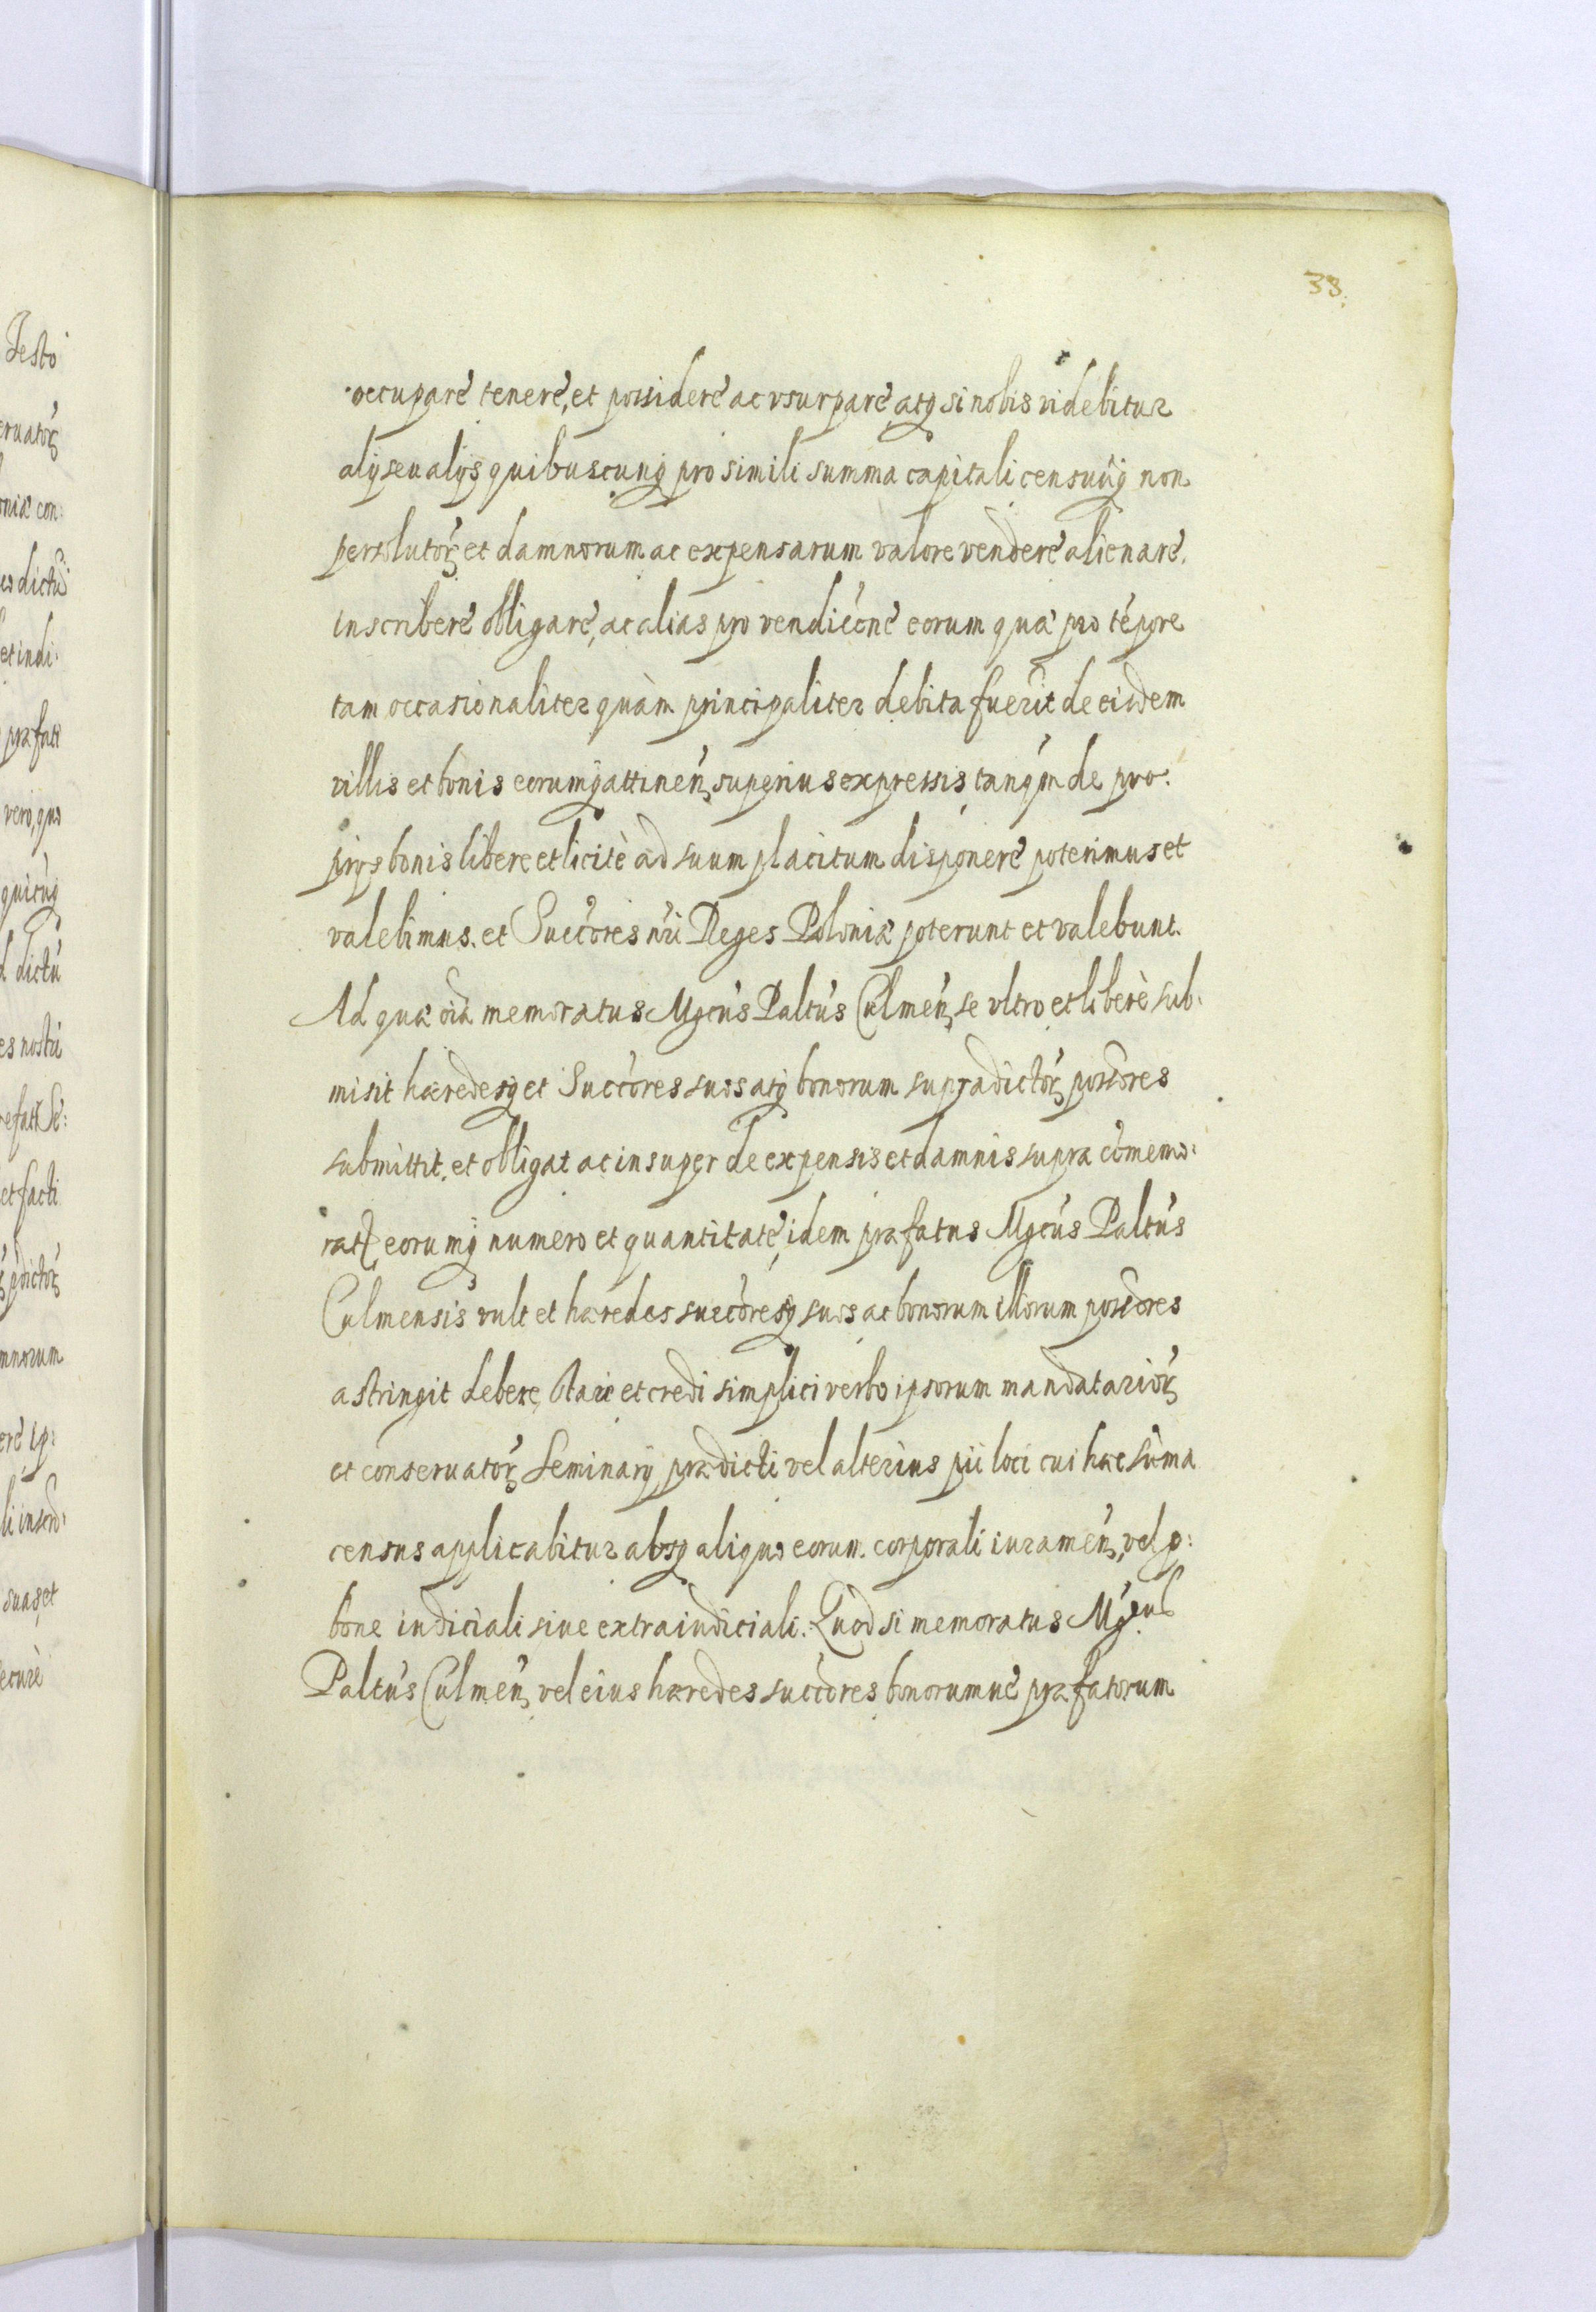 33.
occupare tenere, et possidere ac vsurpare, atq; si nobis videbitur
alij seu alijs quibuscunq; pro simili summa capitali censuūq; non
persolutor. et damnorum ac expensarum valore vendere alienare.
inscribere obligare, ac alias pro vendicōne eorum quæ pro tēpore
tam occasionaliter quàm principaliter debita fuerīt de eisdem
villis et bonis eorumq; attinen. superius expressis, tanq̃m de pro:
prijs bonis libere et licitè ad suum placitum disponere poterimus et
valebimus. et Succōres nr̃i Reges Poloniæ poterunt et valebunt.
Ad quæ oīa memoratus Mgcūs Paltūs Culmen. se vltro et liberè sub:
misit hæredesq; et Succōres suos atq; bonorum supradictor. possōres
submittit. et obligat ac insuper de expensis et damnis supra cōmemo:
ratis, eorumq; numero et quantitate, idem præfatus Mgcūs Paltūs
Culmensis vult et hæredes succōresq; suos ac bonorum illorum possōres
astringit debere, stare et credi simplici verbo ipsorum mandatarior.
et conseruator. Seminarij prædicti vel alterius pii loci cui hæc sūma
census applicabitur absq; aliquo eorum corporali iuramen. vel p:
bōne iudiciali siue extraiudiciali. Quod si memoratus Mg.cus
Paltūs Culmen. vel eius hæredes succōres bonorumue præfatorum